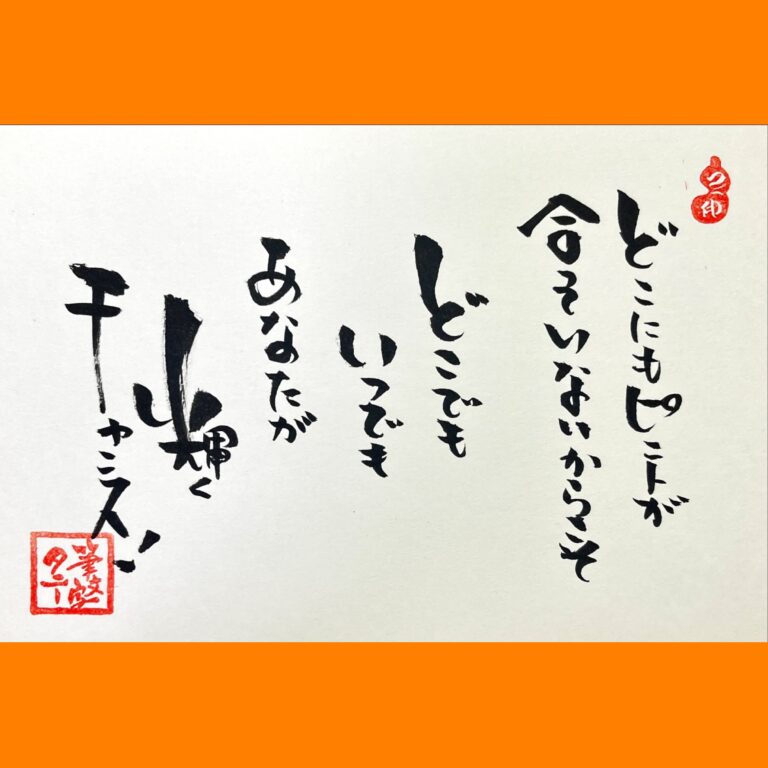 どこにもピントが
合っていないからこそ
どこでも
いつでも
あなたが
輝く
チャンス!